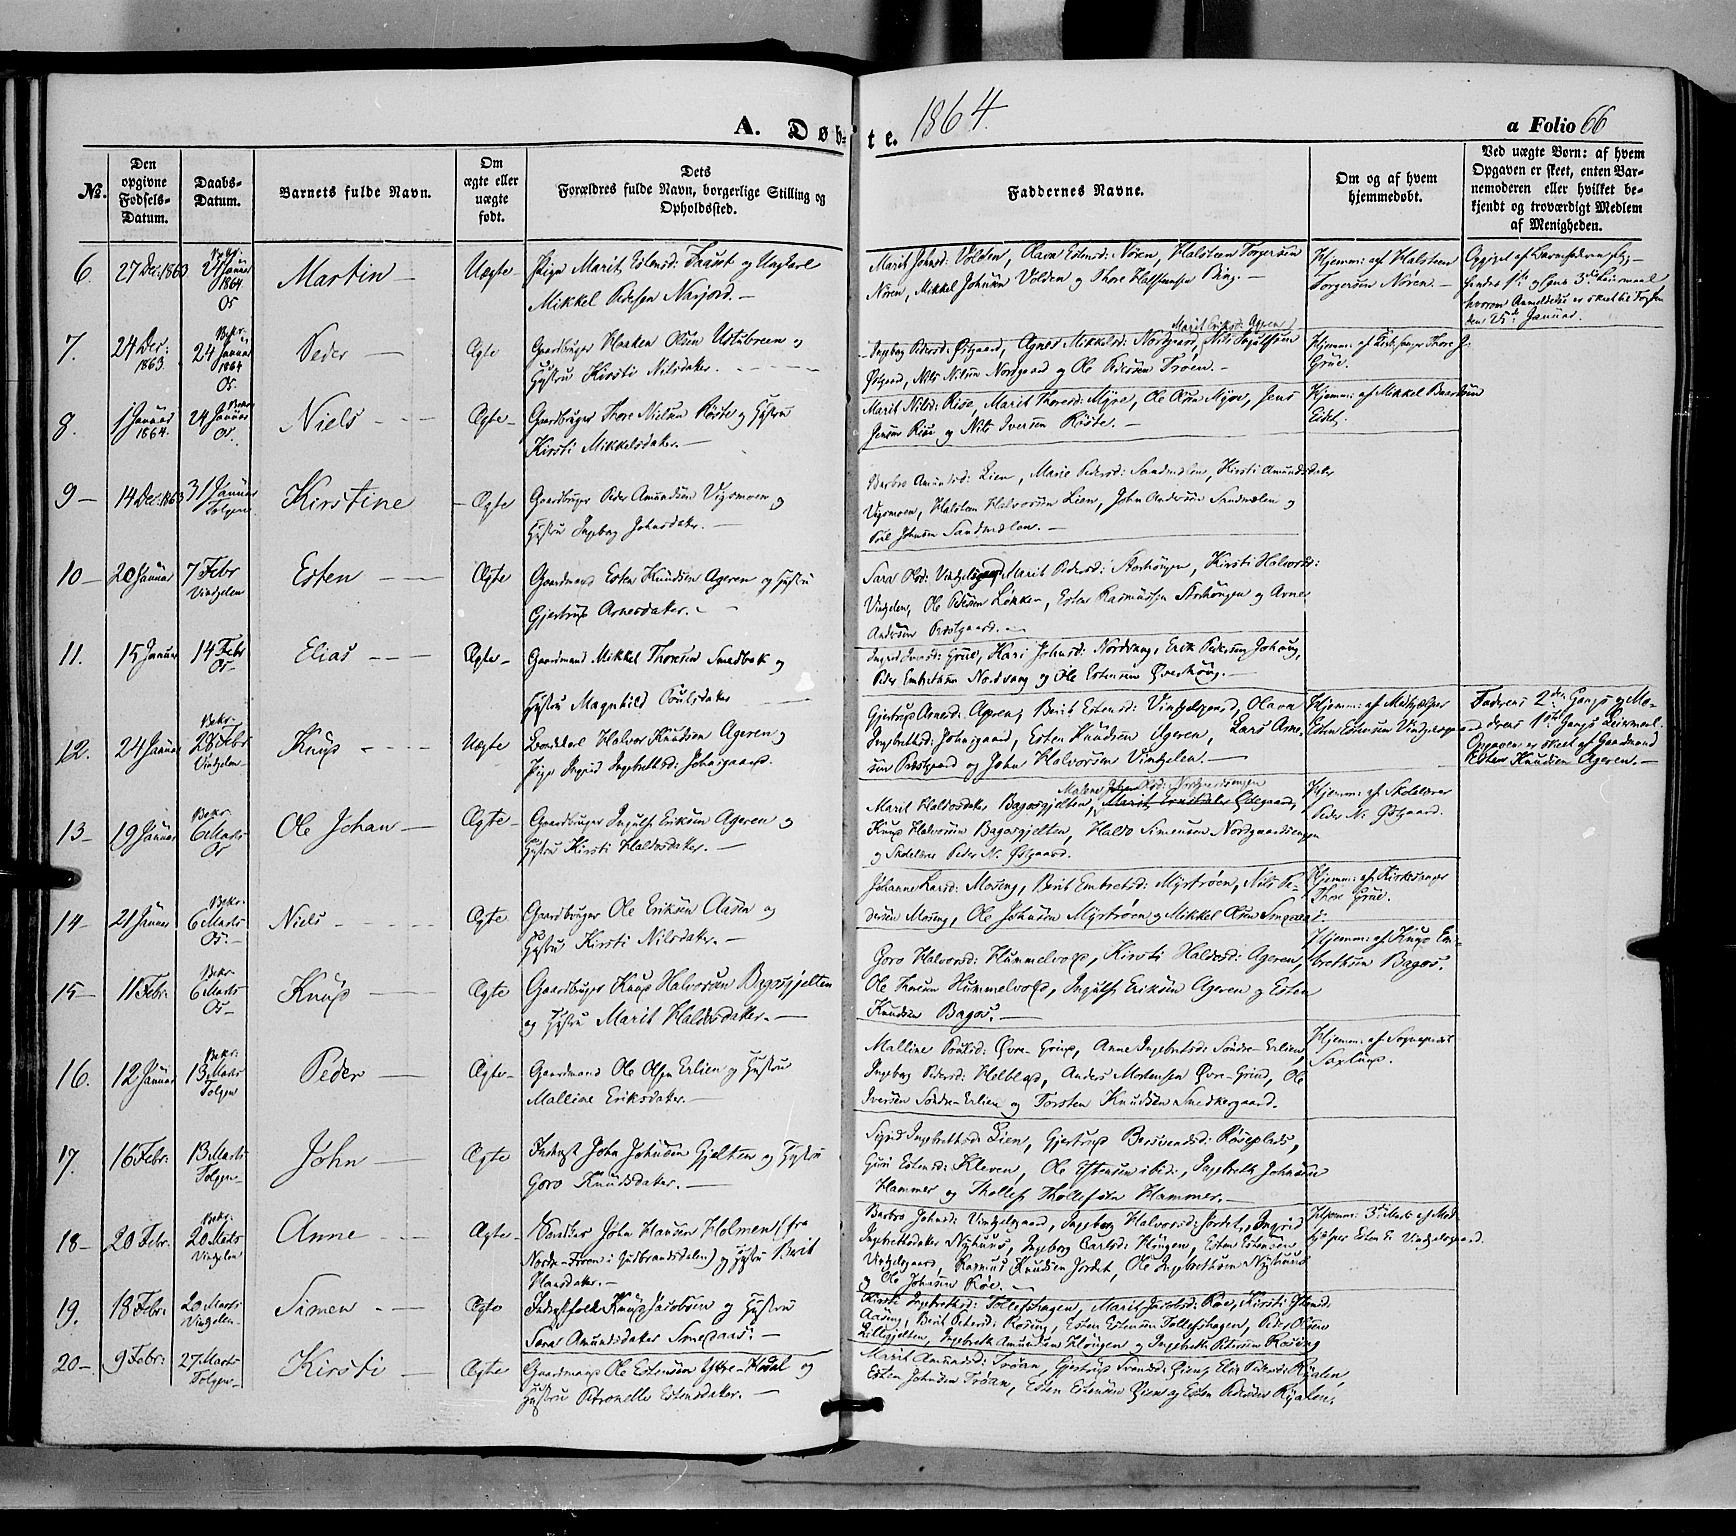 A. Døbte. 1864.
a Folio 66
№.
Den opgivne Fødsels-Datum.
Daabs-Datum.
Barnets fulde Navn.
Om ægte eller uægte født.
Dets Forældres fulde Navn, borgerlige Stilling og Opholdssted.
Faddernes Navne.
Om og af hvem hjemmedøbt.
Ved uægte Børn: af hvem Opgaven er skeet, enten Barnemoderen eller hvilket bekjendt og troværdigt Medlem af Menigheden.
6. 27 Dec. 1863 Januar 1864 Os Martin — Uægte Pige Marit Estensd: og Ungkarl
Mikkel Pedersen —
Marit Johnsd: Volden, Estensd: Nøren, Halsten Torgersen
Nøren, Mikkel Johnsen Volden og Thore
Hjemm: af Halsten
Torgersen Nøren. —
7. 24 Dec: 1863. Bekr. 24 Januar 1864 Os. Peder — Ægte Gaardbruger Haaken Olsen og
Hustru Kirsti Nilsdater. —
Ingeborg Pedersd: Østgaard, Agnes Mikkelsd: Nordgaard, Nils
Østgaard, Nils Nilsen Nordgaard og Ole Pedersen Trøen. —
Hjemm: af Kirkesanger Thore J.
Grue.
8. 1 Januar 1864. 24 Januar Os. Niels — Ægte — Gaardbruger Thore Nielsen Røste og Hustru
Kirsti Mikkelsdater. —
Marit Nilsd: Riise, Marit Thoresd: Myre, Ole Myre, Jens
Jensen Riise og Nils Iversen Røste. —
Hjemm: af Mikkel
Eidet.
9 — 14 Dec. 1863 31 Januar Tolgen Kirstine — Ægte — Gaardbruger Peder Amundsen Vigsmoen og
Hustru Ingeborg Johnsdater. —
Barbro Amundsd: Lien, Marie Pedersd: Sandmælen, Kirsti Amundsdater
Vigsmoen, Halsten Halvorsen Lien, John Andersen Sandmælen og
Poul Johnsen Sandmælen. —
10 — 20 Januar 7 Febr Vindgelen Esten — Ægte Gaardmand Esten Knudsen Ageren og Hustru
Gjertrud Arnesdater. —
Sara Olsd: Vindgelsgaard, Marit Pedersd: Storhøugen, Kirsti Halvorsd:
Vingelen, Ole Pedersen Løkken, Esten Rasmussen Storhøugen og Arne
Andersen Prestgaard. —
11. 15 Januar 14 Febr Os — Elias — Ægte — Gaardmand Mikkel Thoresen Smedbak og
Hustru Magnhild Poulsdater
Ingrid Iversd: Grue, Kari Johnsd: Nordvang, Erik Pedersen Johaug,
Peder Embretsen Nordvang og Ole Estensen Øverhøug. —
12. 24 Januar Bekr. 28 Febr Vindgelen Knud — Uægte Halvor Knudsen Ageren og
Pige Ingrid Ingebretsd: Johnsgaard. —
Gjertrud Arnesd: Ageren, Berit Estensd: Vindgelsgaard, Olava
Ingebretsd: Johnsgaard, Esten Knudsen Ageren, Lars Arne-
sen Prestgaard og John Halvorsen Vindgelen. —
Hjemm: af Medhjælper
Esten Estensen Vindgelsgaard
Faderens 2den Gangs og Mo-
derens 1ste Gangs Leiermaal.
Opgaven er skeet af Gaardmand
Esten Knudsen Ageren. —
13 — 19 Januar Bekr 6 Marts Os Ole Johan — Ægte — Gaardbruger Ingulf Eriksen Ageren og
Hustru Kirsti Haldosdater. —
Marit Haldosdater Bagosgjelten,
Knud Halvorsen Bagosgjelten, Haldo Simensen Nordgaardsengen
og Skolelærer Peder N. Østgaard.
Hjemm: af Skolelærer
Peder N. Østgaard.
14 — 21 Januar Bekr. 6 Marts Os. — Niels — Ægte Gaardbruger Ole Eriksen Aasen og
Hustru Kirsti Nilsdater. —
Johanne Larsd: Moseng, Berit Embretsd: Myrtrøen, Nils Pe-
dersen Moseng, Ole Johnsen Myrtrøen og Mikkel Olsen
Hjemm: af Kirkesanger
Thore Grue.
15 — 11 Febr: Bekr. 6 Marts Os — Knud — Ægte Gaardbruger Knud Halvorsen Bagosgjelten
og Hustru Marit Haldosdater. —
Goro Halvorsd: Hummelvold, Kirsti Haldosd: Ageren,
Ole Hummelvold, Ingulf Eriksen Ageren og Esten
Knudsen Bagos. —
Hjemm: af Knud Em-
bretsen Bagos.
16. 12 Januar Bekr: 13 Marts Tolgen Peder — Ægte — Gaardmand Ole Olsen Erlien og Hustru
Malline Eriksdater. —
Malline Poulsd: Øvre-Grue, Anne Ingebretsd: Søndre-Erlien,
Ingeborg Pedersd: Anders Mortensen Øvre-Grue, Ole
Iversen Søndre-Erlien og Torsten Knudsen Smedhergaard.
Hjemm: af Sogneprest
Saxlund.
17. 16 Febr: 13 Marts Tolgen — John — Ægte Inderst John Johnsen Gjelten og Hustru
Goro Knudsdater. —
Sigrid Ingebretsd: Lien, Gjertrud Røseplads,
Guri Estensd: Kleven, Ole Estensen ibid:, Ingebreth Johnsen
Hammer og Thollef Thollefsen Hammer. —
18 — 20 Febr. Bekr: 20 Marts Vindgelen Anne — Ægte — John Hansen Holmen (fra
Nordre-Froen i Gudbrandsdalen) og Hustru Berit
Hansdater. —
Barbro Johnsd: Vindgelsgaard, Ingeborg Halvorsd: Jordet, Ingrid
Ingebretsdater Nyhuus, Ingeborg Carlsd: Høugen, Esten Estensen
Vindgelsgaard, Rasmus Knudsen Jordet, Ole Ingebretsen Nyhuus
og Ole Johnsen Røe. —
Hjemm: 3die Marts af Med-
hjelper Esten E. Vindgelsgaard.
19. 18 Febr: 20 Marts Vindgelen — Simen — Ægte Inderstfolk Knud Jacobsen og Hustru
Sara Amundsdater —
Kirsti Ingebretsd: Tollefshagen, Marit Jacobsd: Roe, Kirsti
Aaseng, Berit Pedersd: Røseng, Esten Estensen Tollefshagen, Peder Olsen
Lillegjelten, Ingebreth Amundsen Høugen og Ingebreth Petersen Røseng
20 — 9 Febr: 27 Marts Tolgen — Kirsti — Ægte Gaardmand Ole Estensen Ytre-Hodal og
Hustru Petronelle Estensdater. —
Marit Amundsd: Trøan, Gjertrud Svendsd: Øien, Eli Pedersd: Ryalen,
Esten Johnsen Trøan, Esten Estensen Øien og Esten Pedersen Ryalen.